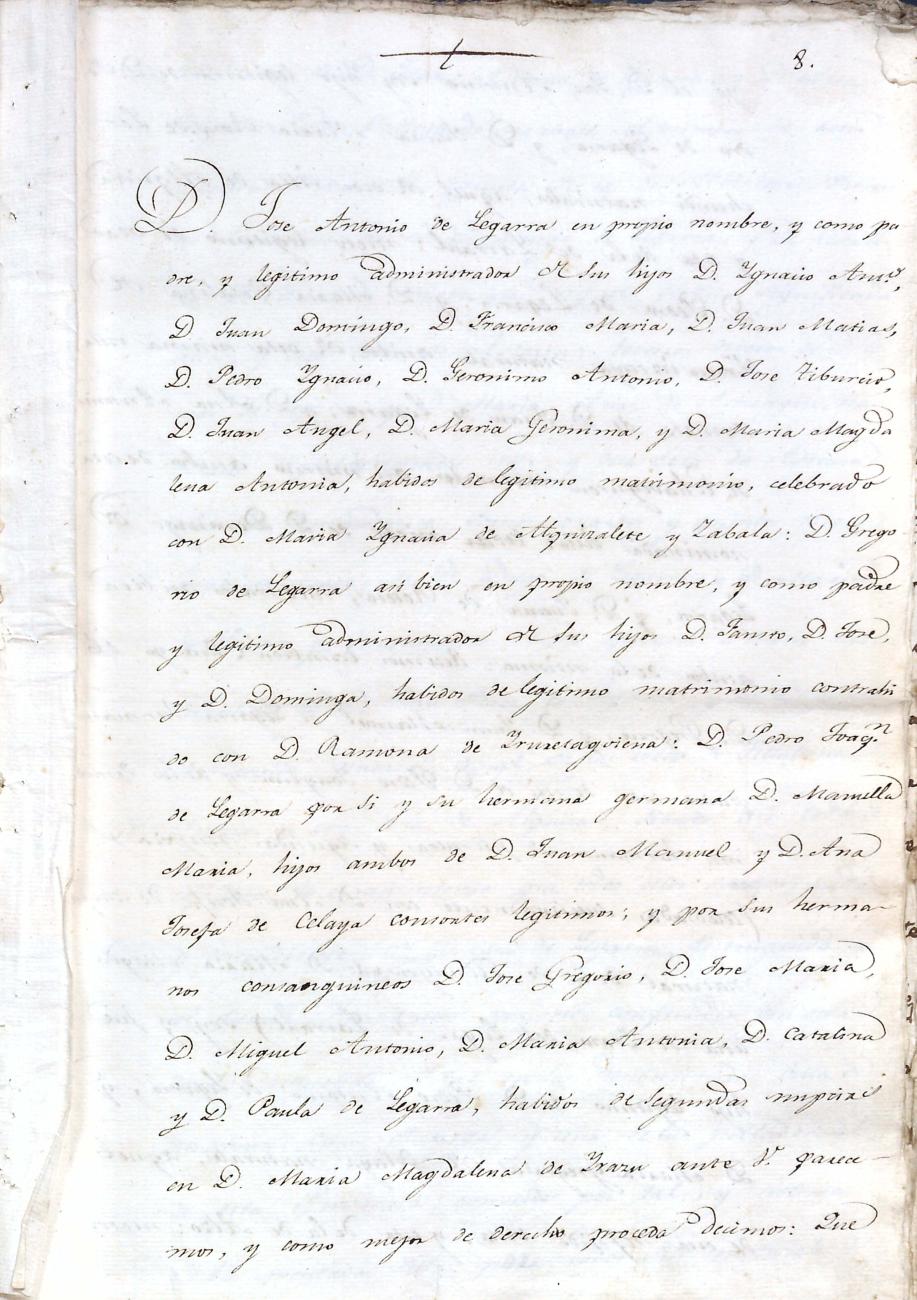 8.
D. Jose Antonio de Legarra en propio nombre, y como pa
dre, y legitimo administrador de sus hijos D. Ygnacio Antº,
D. Juan Domingo, D. Francisco Maria, D. Juan Matias,
D. Pedro Ygnacio, D. Geronimo Antonio, D. Jose Tiburcio,
D. Juan Angel, D. Maria Geronima, y D. Maria Magda
lena Antonia, habidos de legitimo matrimonio, celebrado
con D. Maria Ygnacia de Alquizalete y Zabala: D. Grego
rio de Legarra asi bien en propio nombre, y como padre
y legitimo administrador de sus hijos D. Fausto, D. Jose,
y D. Dominga, habidos de legitimo matrimonio contrahi
do con D. Ramona de Yruretagoiena: D. Pedro Joaqn
de Legarra por si y su hermana germana D. Manuella
Maria, hijos ambos de D. Juan Manuel y D. Ana
Josefa de Celaya consortes legitimos; y por sus herma-
nos consanguineos D. Jose Gregorio, D. Jose Maria,
D. Miguel Antonio, D. Maria Antonia, D. Catalina
y D. Paula de Legarra, habidos de segundas nupcias
en D. Maria Magdalena de Yrazu ante V. parece-
mos, y como mejor de derecho proceda decimos: Que